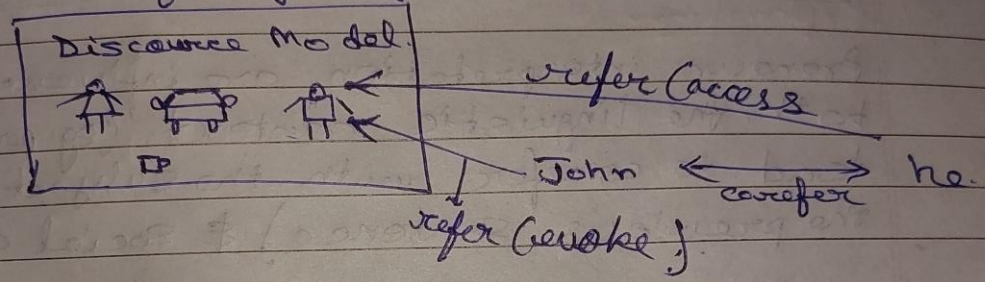 Discource Model.
refer (access
John
corefer
he.
refer (evoke)